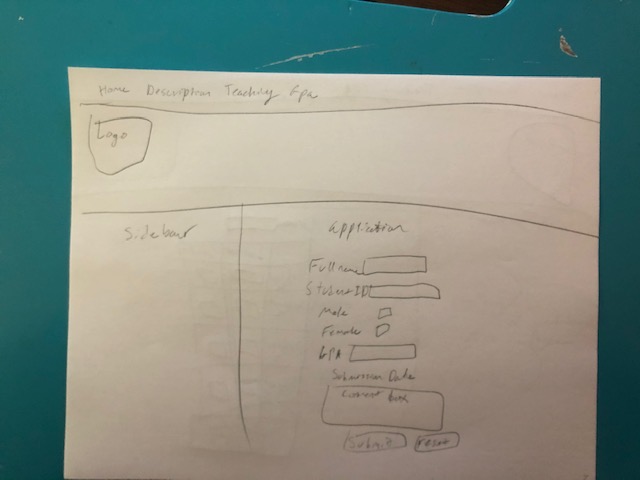 Home Description Teaching Gpa
Logo
Sidebar
Application
Full name
Student ID
Male
Female
GPA
Submission Date
Coment box
Submit reset